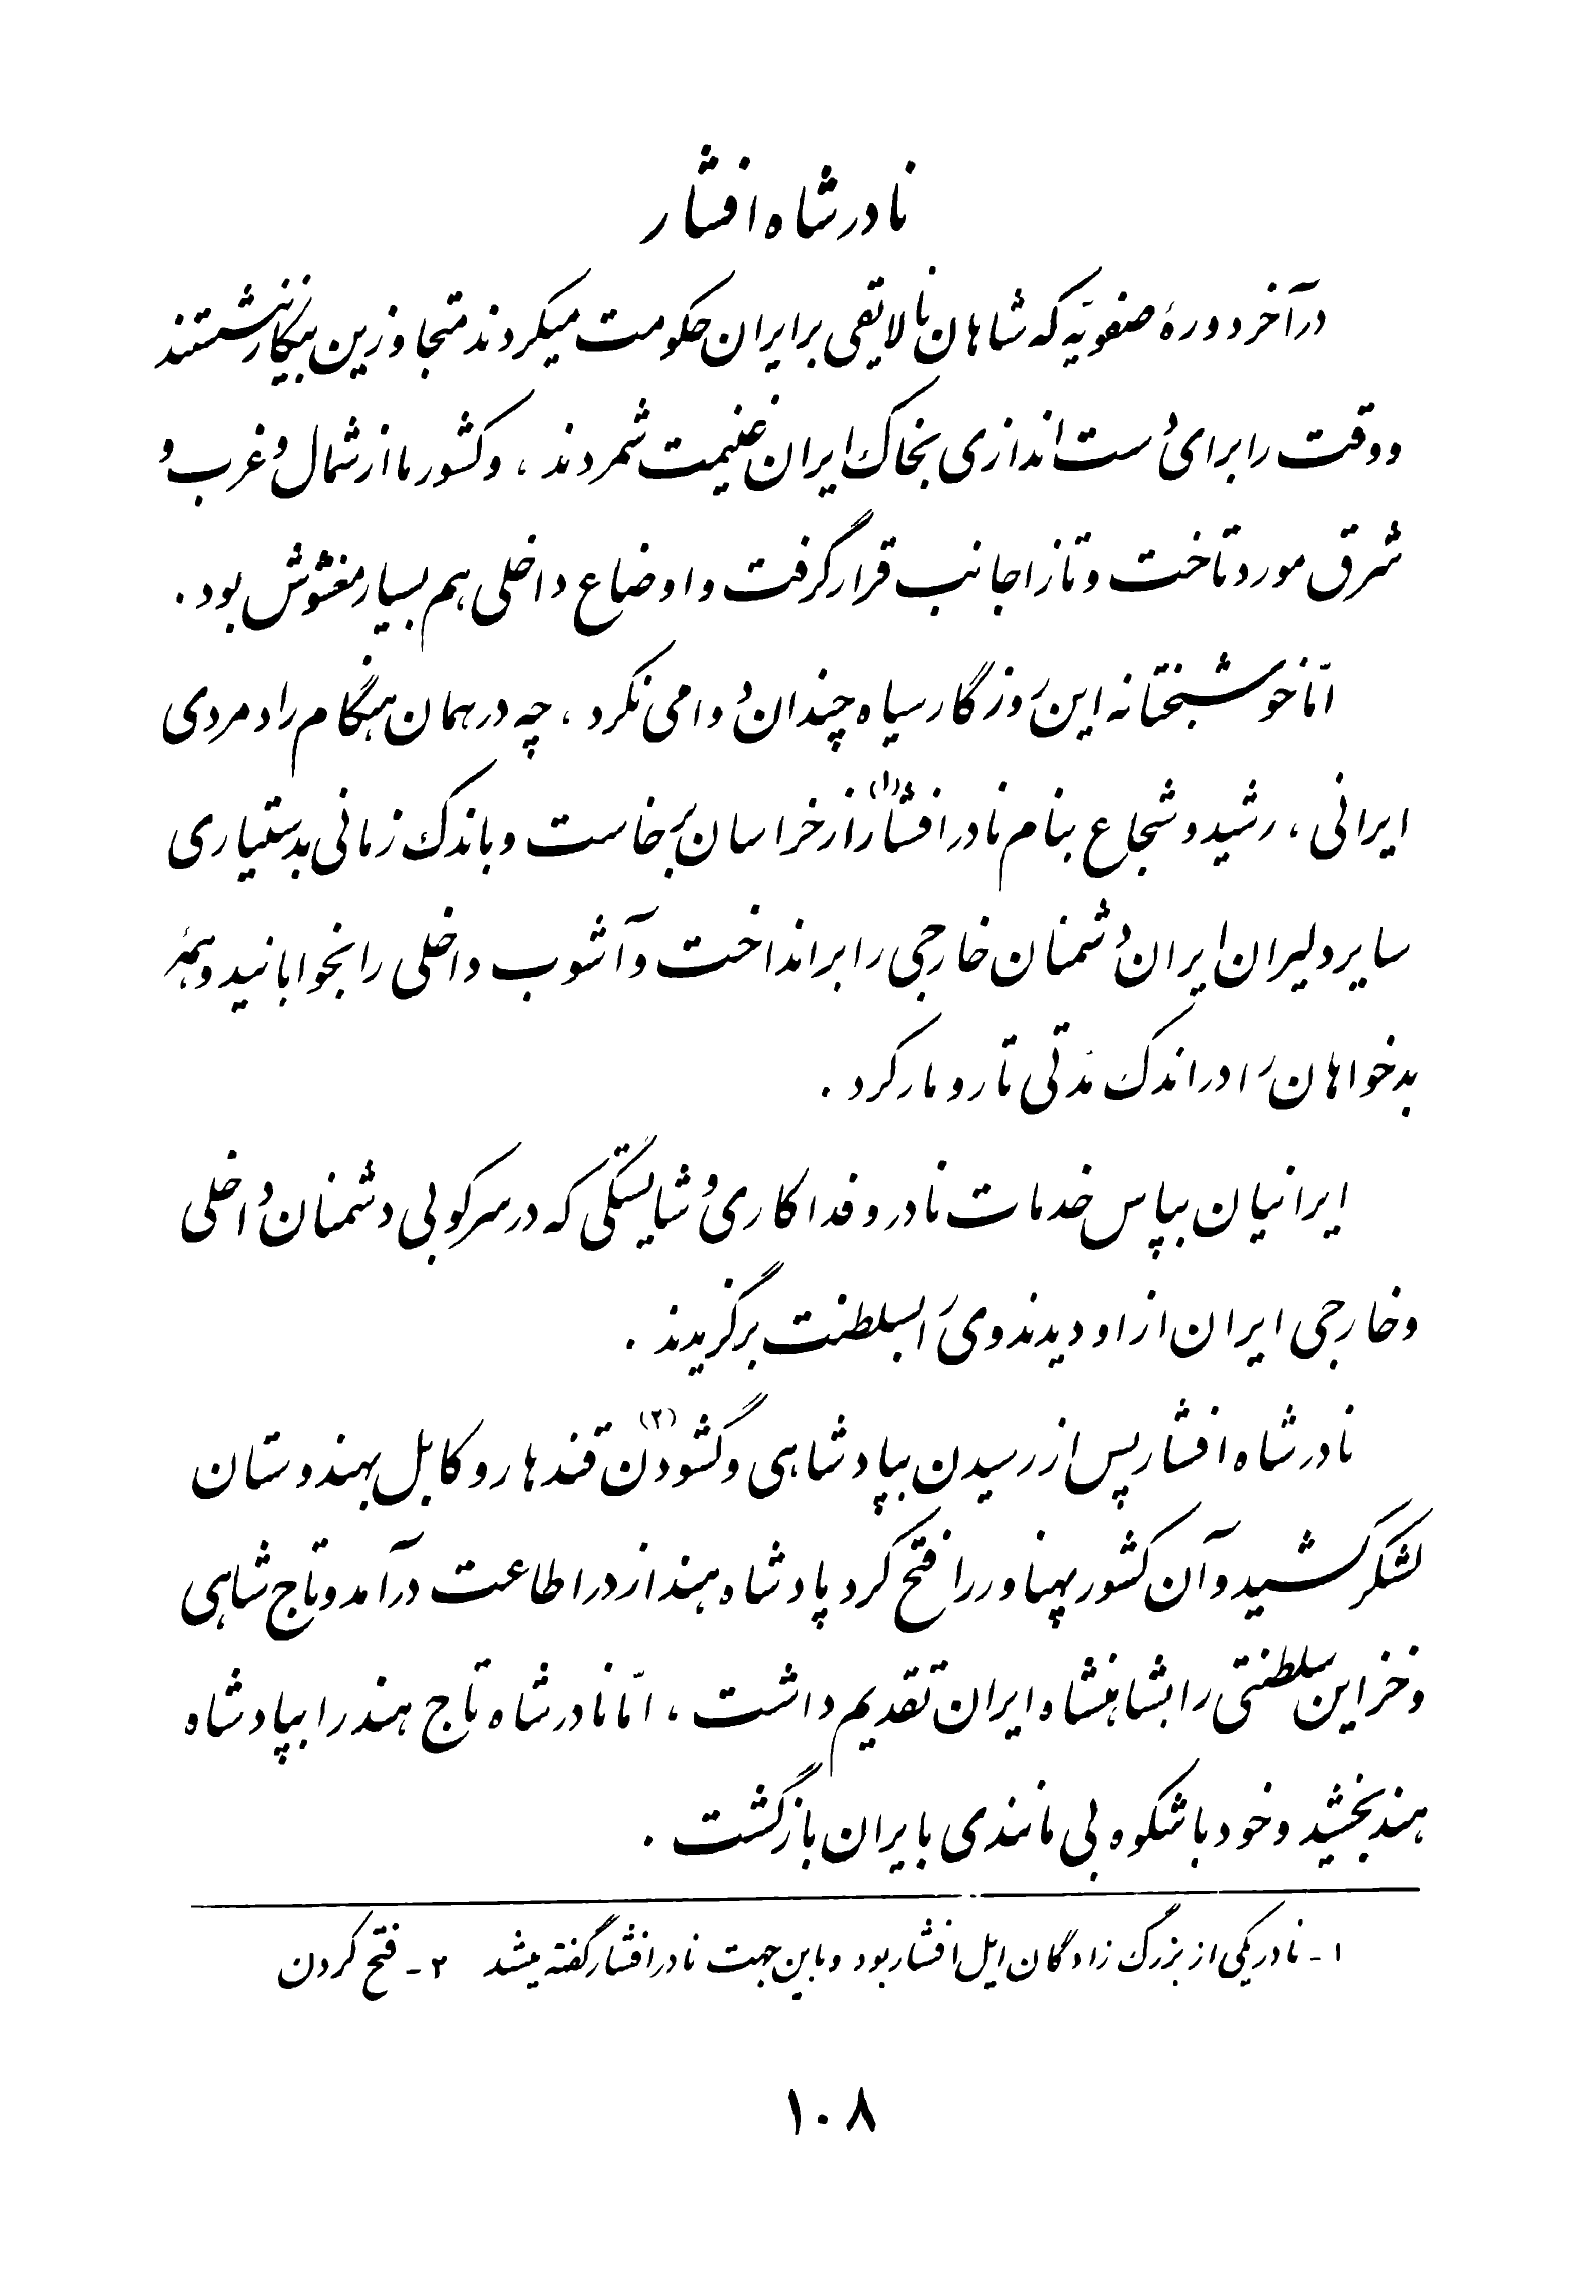 نادرشاه افشار
در آخر دورهٔ صفویّه که شاهان نالایقی بر ایران حکومت میکردند متجاوزین بیکار ننشستند
و وقت را برای دست اندازی بخاک ایران غنیمت شمردند ، و کشور ما از شمال و غرب و
شرق مورد تاخت و تاز اجانب قرار گرفت و اوضاع داخلی هم بسیار مغشوش بود .
امّا خوشبختانه این روزگار سیاه چندان دوامی نکرد ، چه در همان هنگام رادمردی
ایرانی ، رشید و شجاع بنام نادر افشار (۱) از خراسان برخاست و باندک زمانی بدستیاری
سایر دلیران ایران دشمنان خارجی را برانداخت و آشوب داخلی را بخوابانید و همهٔ
بدخواهان را در اندک مدّتی تار و مار کرد .
ایرانیان بپاس خدمات نادر و فداکاری و شایستگی که در سرکوبی دشمنان داخلی
و خارجی ایران از او دیدند وی را بسلطنت برگزیدند .
نادرشاه افشار پس از رسیدن بپادشاهی و گشودن (۲) قندهار و کابل بهندوستان
لشکر کشید و آن کشور پهناور را فتح کرد پادشاه هند از در اطاعت درآمد و تاج شاهی
و خزاین سلطنتی را بشاهنشاه ایران تقدیم داشت ، امّا نادرشاه تاج هند را بپادشاه
هند بخشید و خود با شکوه بی مانندی بایران بازگشت .
۱ - نادر یکی از بزرگ زادگان ایل افشار بود و باین جهت نادر افشار گفته میشد ۲ - فتح کردن
۱۰۸